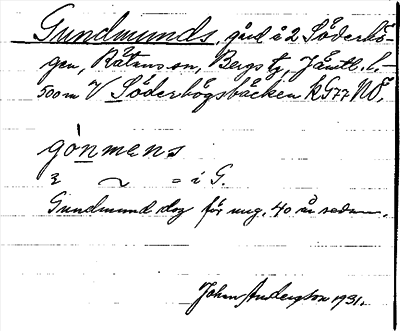 Gundmunds, gård i 2 Söderhö-
gen, Rätans sn, Bergs tg, Jämtl. l.-
500 m V Söderhögsbäcken kG77NÖ.
gònmens
= i G.
Gundmund dog för ung. 40 år sedan.
John Anderzon 1931.